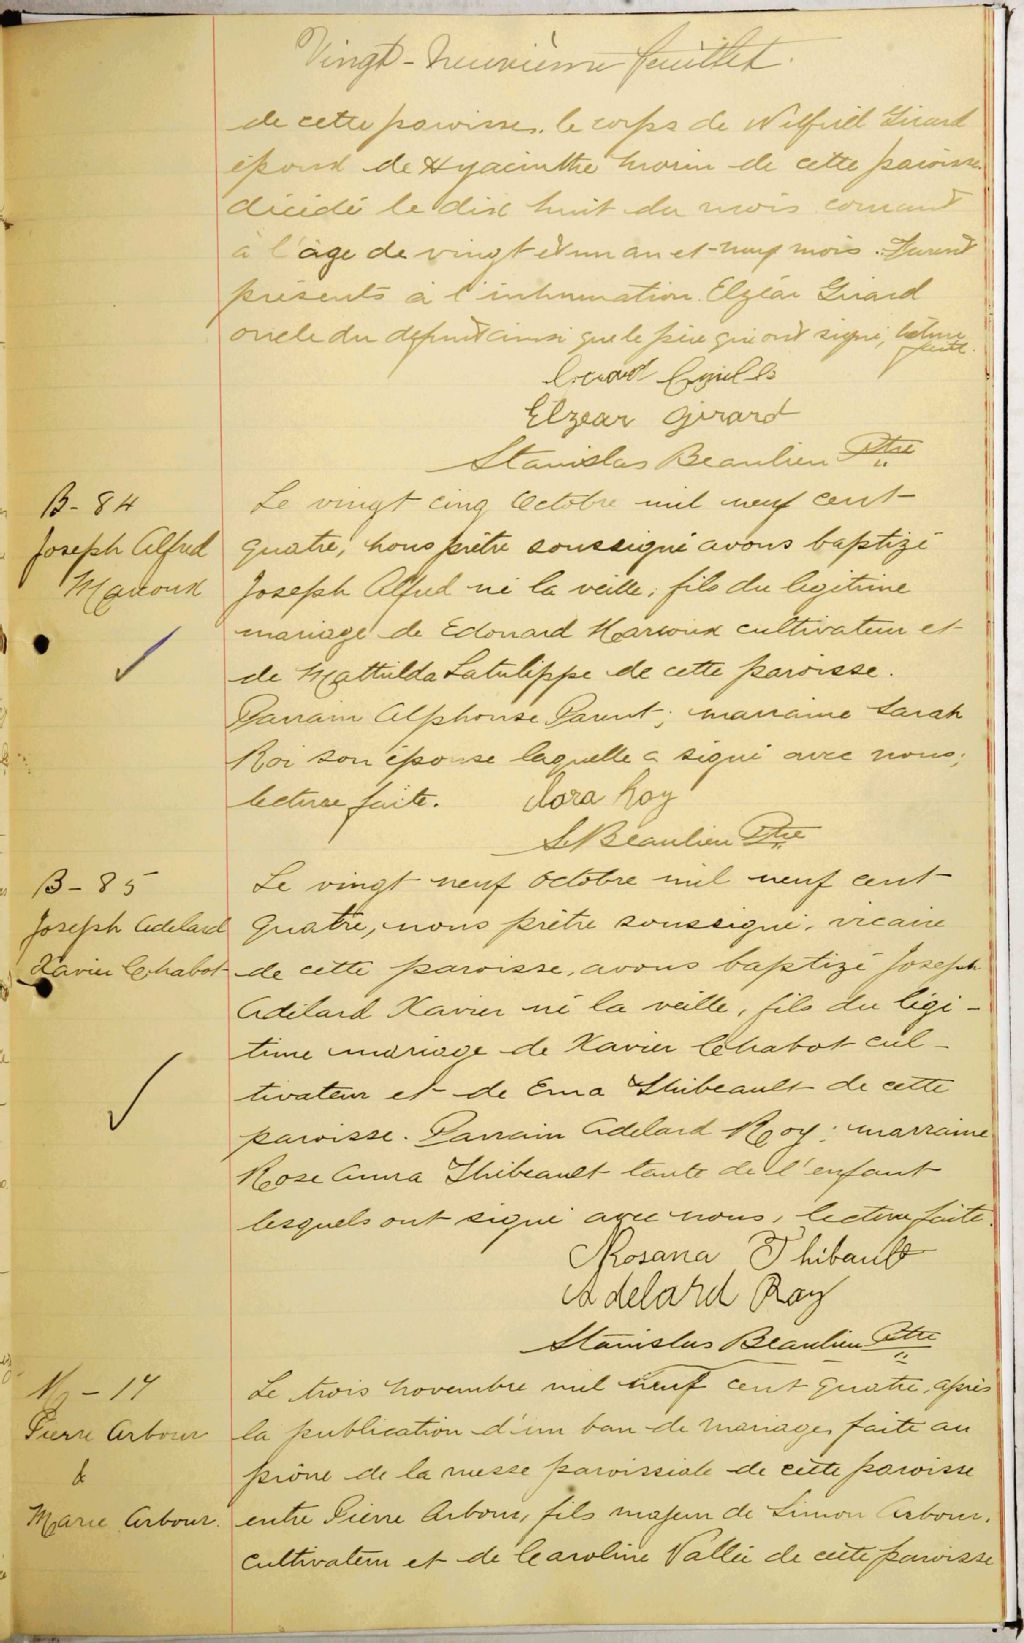 Vingt-neuvième feuillet.
de cette paroisse, le corps de Wilfrid Girard
époux de Hyacinthe Morin de cette paroisse
décédé le dix huit du mois courant
à l'âge de vingt et un an et neuf mois. Furent
présents à l'inhumation Elzéar Girard
oncle du defunt ainsi que le père qui ont signé, lecture
faite.
Girard
Elzear Girard
Stanislas Beaulieu Ptre
B-84
Joseph Alfred
Marcoux
Le vingt cinq Octobre mil neuf cent
quatre, nous prêtre soussigné avons baptizé
Joseph Alfred né la veille, fils du legitime
mariage de Edouard Marcoux cultivateur et
de Mathilda Latulippe de cette paroisse.
Parrain Alphonse Parent; marraine Sarah
Roi son épouse laquelle a signé avec nous;
lecture faite. Roy
S. Beaulieu Ptre
B-85
Joseph Adelard
Xavier Chabot
Le vingt neuf octobre mil neuf cent
quatre, nous prêtre soussigné, vicaire
de cette paroisse, avons baptizé Joseph
Adélard Xavier né la veille, fils du légi-
time mariage de Xavier Chabot cul-
tivateur et de Ema Thibeault de cette
paroisse. Parrain Adelard Roy; marraine
Rose Anna Thibeault tante de l'enfant
lesquels ont signé avec nous, lecture faite.
Rosana Thibault
Adelard Roy
Stanislas Beaulieu Ptre
M-14
Pierre Arbour
&
Marie Arbour.
Le trois novembre mil neuf cent quatre, après
la publication d'un ban de mariage, faite au
prône de la messe paroissiale de cette paroisse
entre Pierre Arbour, fils majeur de Simon Arbour,
cultivateur et de Caroline Vallée de cette paroisse